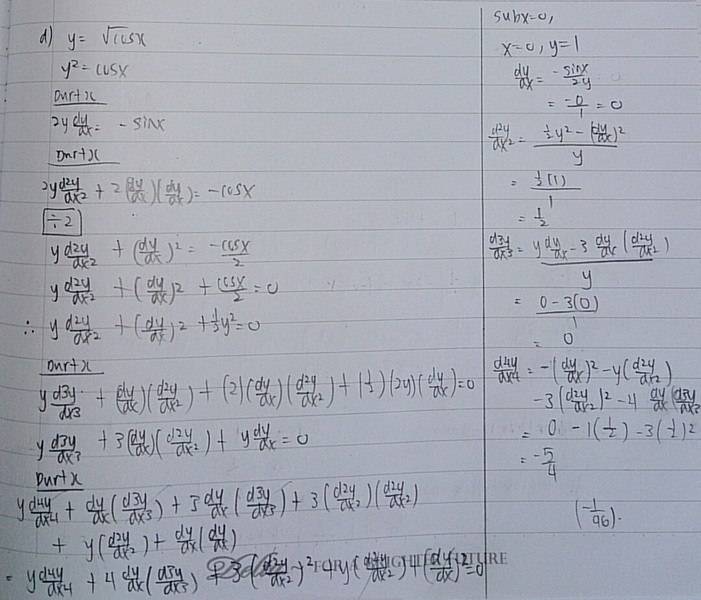 d) y = √cosx
y² = cosx
Dwrtx
2y dy/dx = - sinx
Dwrtx
2y d2y/dx2 + 2(dy/dx)(dy/dx) = -cosx
÷2
y d2y/dx2 + (dy/dx)² = -cosx/2
y d2y/dx2 + (dy/dx)2 + cosx/2 = 0
∴ y d2y/dx2 + (dy/dx)2 + ½y² = 0
Dwrtx
y d3y/dx3 + (dy/dx)(d2y/dx2) + (2)(dy/dx)(d2y/dx2) + (½)(2y)(dy/dx) = 0
y d3y/dx3 + 3(dy/dx)(d2y/dx2) + y dy/dx = 0
Dwrtx
y d4y/dx4 + dy/dx(d3y/dx3) + 3 dy/dx(d3y/dx3) + 3(d2y/dx2)(d2y/dx2)
+ y(d2y/dx2) + dy/dx(dy/dx)
= y d4y/dx4 + 4 dy/dx(d3y/dx3) + 3(d2y/dx2)² + y(d2y/dx2) + (dy/dx)² = 0
subx=0,
x=0, y=1
dy/dx = -sinx/2y
= -0/1 = 0
d2y/dx2 = ½y² - (dy/dx)²/y
= ½(1)/1
= ½
d3y/dx3 = y dy/dx - 3 dy/dx(d2y/dx2)/y
= 0-3(0)/1
= 0
d4y/dx4 = -(dy/dx)² - y(d2y/dx2)
-3(d2y/dx2)² - 4 dy/dx(d3y/dx3
= 0 - 1(½) - 3(½)²
= -5/4
(-1/96).